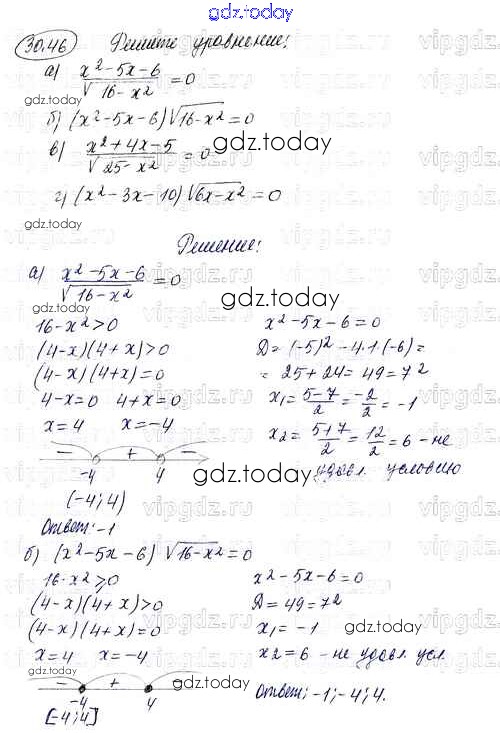 gdz.today
30.46 Решите уравнение:
а) x²-5x-6 / √16-x² = 0
gdz.today
б) (x²-5x-6)√16-x² = 0
gdz.today
в) x²+4x-5 / √25-x² = 0
г) (x²-3x-10)√6x-x² = 0
gdz.today
Решение:
а) x²-5x-6 / √16-x² = 0
gdz.today
16-x²>0
(4-x)(4+x)>0
(4-x)(4+x)=0
4-x=0 4+x=0
x=4 x=-4
- + -
-4 4
(-4;4)
Ответ: -1
x²-5x-6=0
D=(-5)²-4·1(-6)=
=25+24=49=7²
x₁=5-7/2=-2/2=-1
x₂=5+7/2=12/2=6 - не
удовл условию
gdz.today
gdz.today
б) (x²-5x-6)√16-x²=0
16-x²≥0
(4-x)(4+x)>0
(4-x)(4+x)=0
x=4 x=-4
- + -
-4 4
[-4;4]
x²-5x-6=0
D=49=7²
x₁=-1
gdz.today
x2=6 - не удовл усл
gdz.today
Ответ: -1; -4; 4.
gdz.today
vipgdz.ru